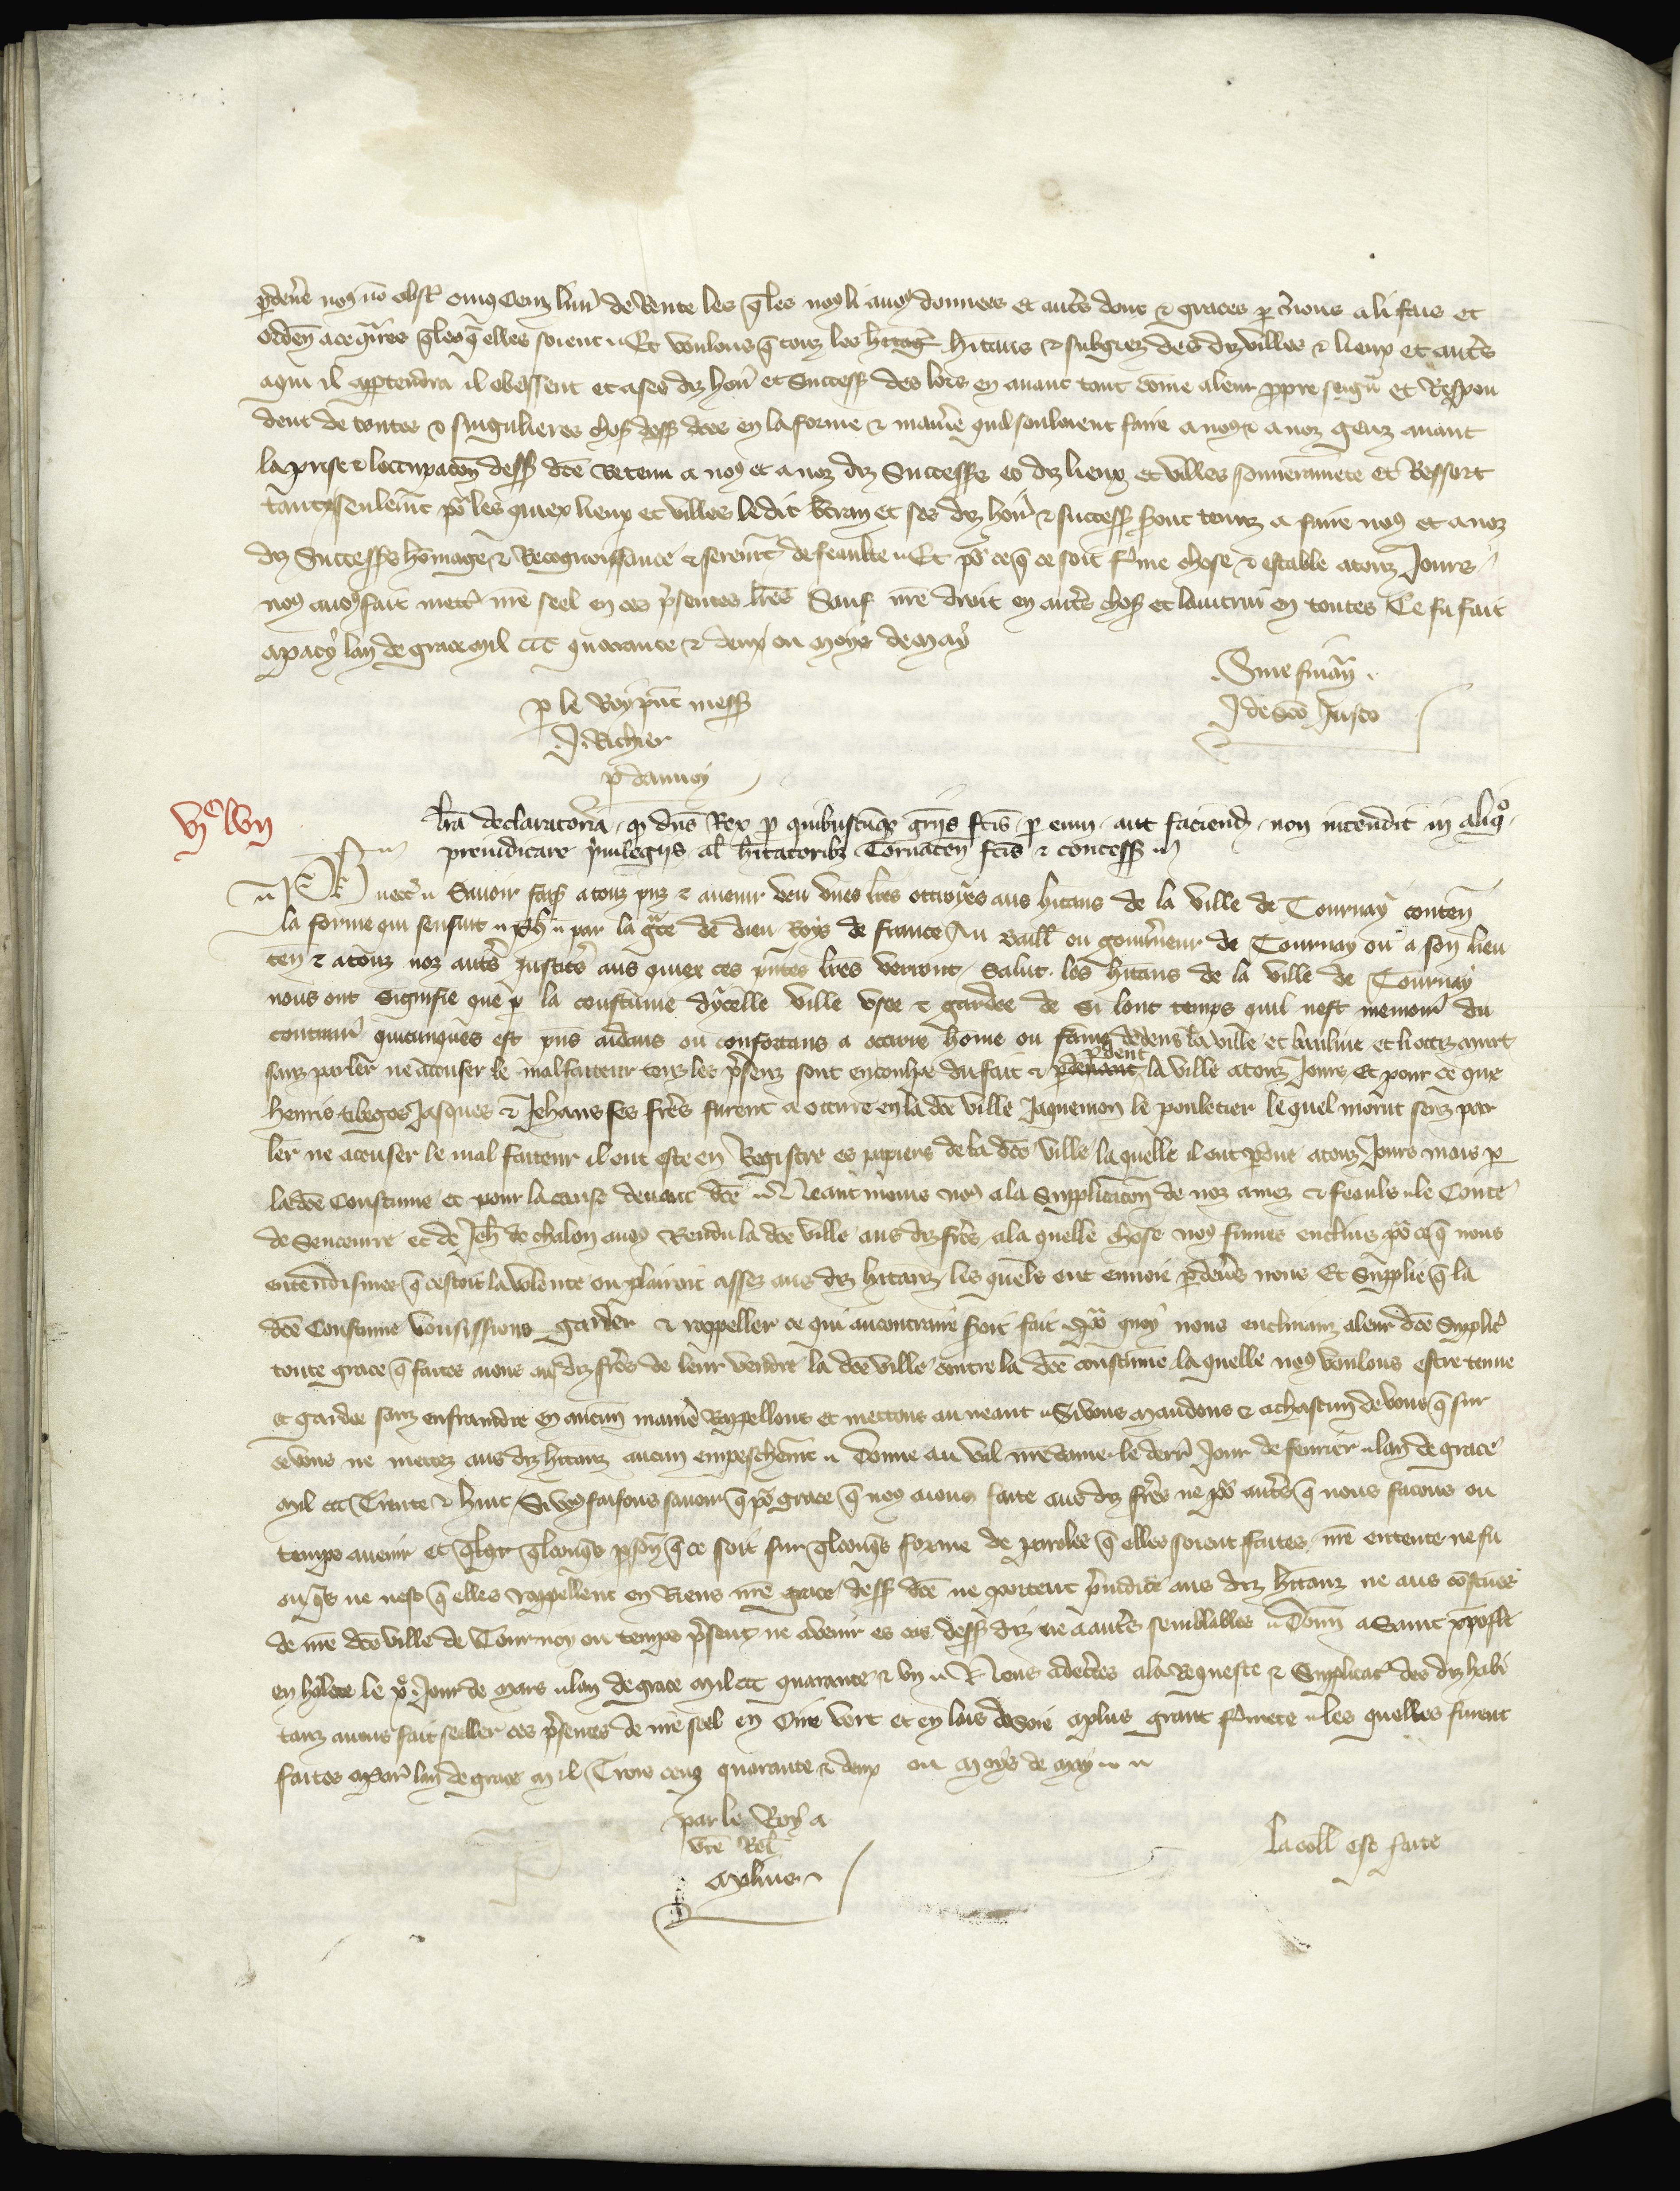 pdeuers noꝰ no obst omꝰ Cenz liur de Rente les qles noꝰ li auoꝰ donnees et autres dons & graces p nous a li fais et
orden acegreurs qles q elles soient Et voulons q touz les hitans & subgiez des diz villes & lieux et autres
aqui il apptendra il obeissent et a ses diz hoirs et Success des lors en auant tout come a leur ppre seigr et Respon
dent de toutes & singulieres chos dess dces en la forme & maniere quil souloient faire a noꝰ & a noz genz auant
la prise & loccupacon dess dce Retenu a noꝰ et a noz diz Successrs es diz lieux et villes souuerainete et Ressort
tant seulemt por les quiex lieux et villes le dit et ses diz hoirs & success sont tenuz a faire noꝰ et a noz
diz Successrs homage & Recognoissance & seremt de feaulte Et por ce q ce soit ferme chose & estable atouz Jours
noꝰ auoꝰ fait mettre nre seel en ces presentes lres Sauf nre droit en autres chos et lautrui en toutes Ce fu fait
a pacy lan de grace mil CCC quarante & deux ou moys de May
Sine finan
J de Sco Justo
p le Roy pnt mess
J. Richier
p daunoy
vjxx lvij
Lra declaratoria q dns Rex p quibuscuqꝫ grijs fcis p eum aut faciend non intendit in aliqo
preiudicare priuilegijs al hitatoribꝫ Tornacen fcis & concess
Ph &c Sauoir fais a touz pnz & auenir veu vnes lres ottroyees aus hitans de la ville de Tournay conten
la forme qui sensuit Ph par la gce de dieu Roys de france Au Baill ou gouuerneur de Tournay ou a son lieu
ten & atouz noz autres Justices aus quiex ces presentes lres verront Salut les hitans de la ville de Tournay
nous ont signifie que p la coustume dycelle ville vsee & gardee de si lonc temps quil nest memoire du
contraire quicunques est pns aidans ou confortans a occirre home ou fame dedens la ville et banliue et li occis muert
sanz parler ne accuser le malfaiteur touz les presenz sont encoulpe du fait & pdent la ville atouz Jours Et pour ce que
henris Jaques & Jehans ses freres furent a occirre en la dce ville Jaquemon le pouletier lequel morut senz par
ler ne acuser le mal faiteur il ont este en Registre es papiers de la dce ville la quelle il ont pdue atouz Jours mais p
la dce Coustume et pour la cause deuant dce Neant moins noꝰ a la Supplicacon de noz amez & feauls le Conte
de Sencerre et de Jeh de chalon auoꝰ Rendu la dce ville aus diz freres ala quelle chose noꝰ fumes enclins por ce q nous
entendismes q cestoit la volente ou plairoit assez aus diz hitanz les quels ont enuoie pdeuers nous Et Supplie q la
dce Coustume vousissions garder & rappeller ce qui aucontraire seroit fait por quoy nous enclinanz a leur dce Supplic
toute grace q faites auons aus diz freres de leur rendre la dce ville contre la dce coustume la quelle noꝰ voulons estre tenue
et gardee sanz enfraindre en aucun maniere Rappellons et mettons au neant Si vous mandons & a chascun de vous q sur
ce vous ne mettez aus diz hitanz aucun empeschemt Donne au val nre dame le derr Jour de feurier lan de grace
mil ccc Trente & huit Si voꝰ faisons sauoir q por grace q noꝰ aions faite aus diz freres ne por autres q nous facons ou
temps auenir et qlqr qlconqs psone q ce soit sur qlconqs forme de paroles q elles soient faites nre entente ne fu
onqs ne nest q elles rappellent en Riens nre grace dess dce ne portent preiudice aus diz hitanz ne aus coustues
de nre dce ville de Tournay ou temps present ne auenir es cas dess diz ne a autres semblables Donn a Saint xpofle
en halate le xe Jour de Mars lan de grace mil CCC quarante & vn Nous adecertes ala Requeste & Supplicac des diz habi
tanz auons fait seeller ces presentes de nre seel en Cire vert et en las de soie a plus grant fermete les quelles furent
faites a Paris lan de grace mil Trois cenz quarante & deux ou Moys de May
par le Roy a
vre Rel
Aplius
La coll est faite